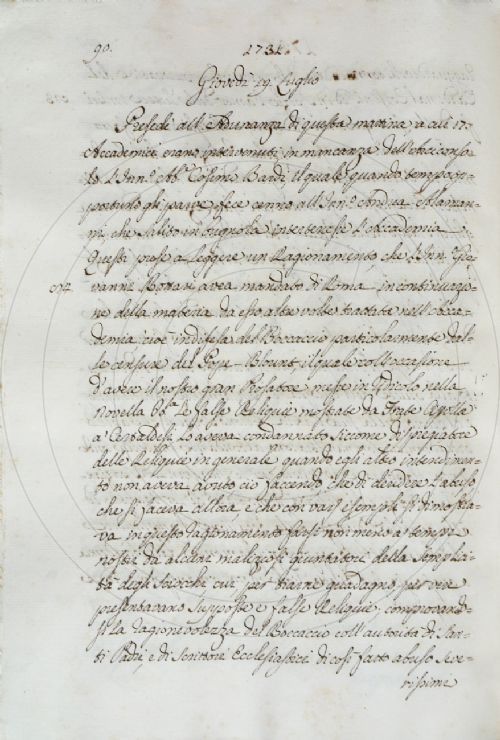 90. 1734
Giovedì 29 Luglio
Presedè all'Adunanza di questa mattina, a cui 17.
Accademici erano intervenuti, in mancanza dell'Arciconso-
lo l'Inn.º Ab.e Cosimo Bardi, il quale quando tempo op-
portuno gli parve, fece cenno all'Inn.º Andrea Alaman-
ni, che salito in bugnola intertenesse l'Accademia.
Questi prese a leggere un Ragionamento, che l'Inn. Gio-
vanni Bottari avea mandato di Roma in continuazio-
ne della materia da esso altre volte trattata nell'Acca-
demia, cioè in difesa del Boccaccio particolarmente dal-
le censure del Pope-Blount, il quale coll'occasione
d'avere il nostro gran Prosatore messe in ridicolo nella
Novella le false Reliquie mostrate da Frate Cipolla
a' Certaldesi, lo aveva condannato siccome dispregiatore
delle Reliquie in generale, quando egli altro intendimen-
to non aveva avuto ciò facendo che di deridere l'abuso
che si faceva allora, e che con varj esempli si dimostra-
va in questo ragionamento farsi non meno a' tempi
nostri da alcuni maliziosi giuntatori della sempli-
tà degli sciocchi cui per trarne guadagno per vere
presentavano supposte e false Reliquie; comprovando-
si la ragionevolezza del Boccaccio coll'autorità di San-
ti Padri, e di Scrittori Ecclesiastici di così fatto abuso seve-
rissimi